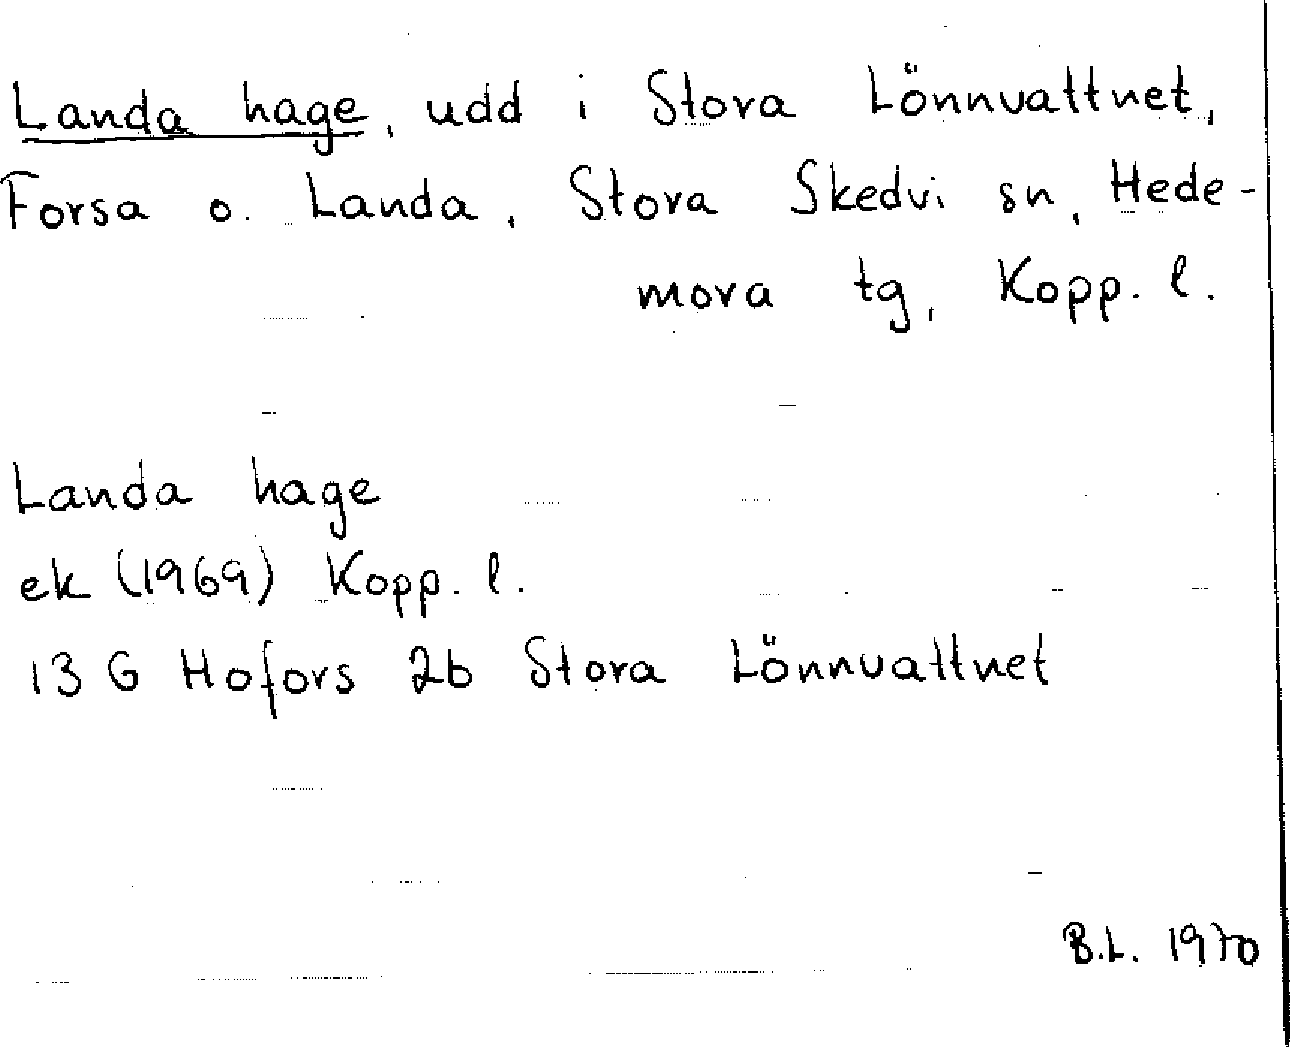 Landa hage, udd i Stora Lönnvattnet,
Forsa o. Landa, Stora Skedvi sn, Hede-
mora tg, Kopp. l.
Landa hage
ek (1969) Kopp. l.
13 G Hofors 2b Stora Lönnvattnet
B.L. 1970